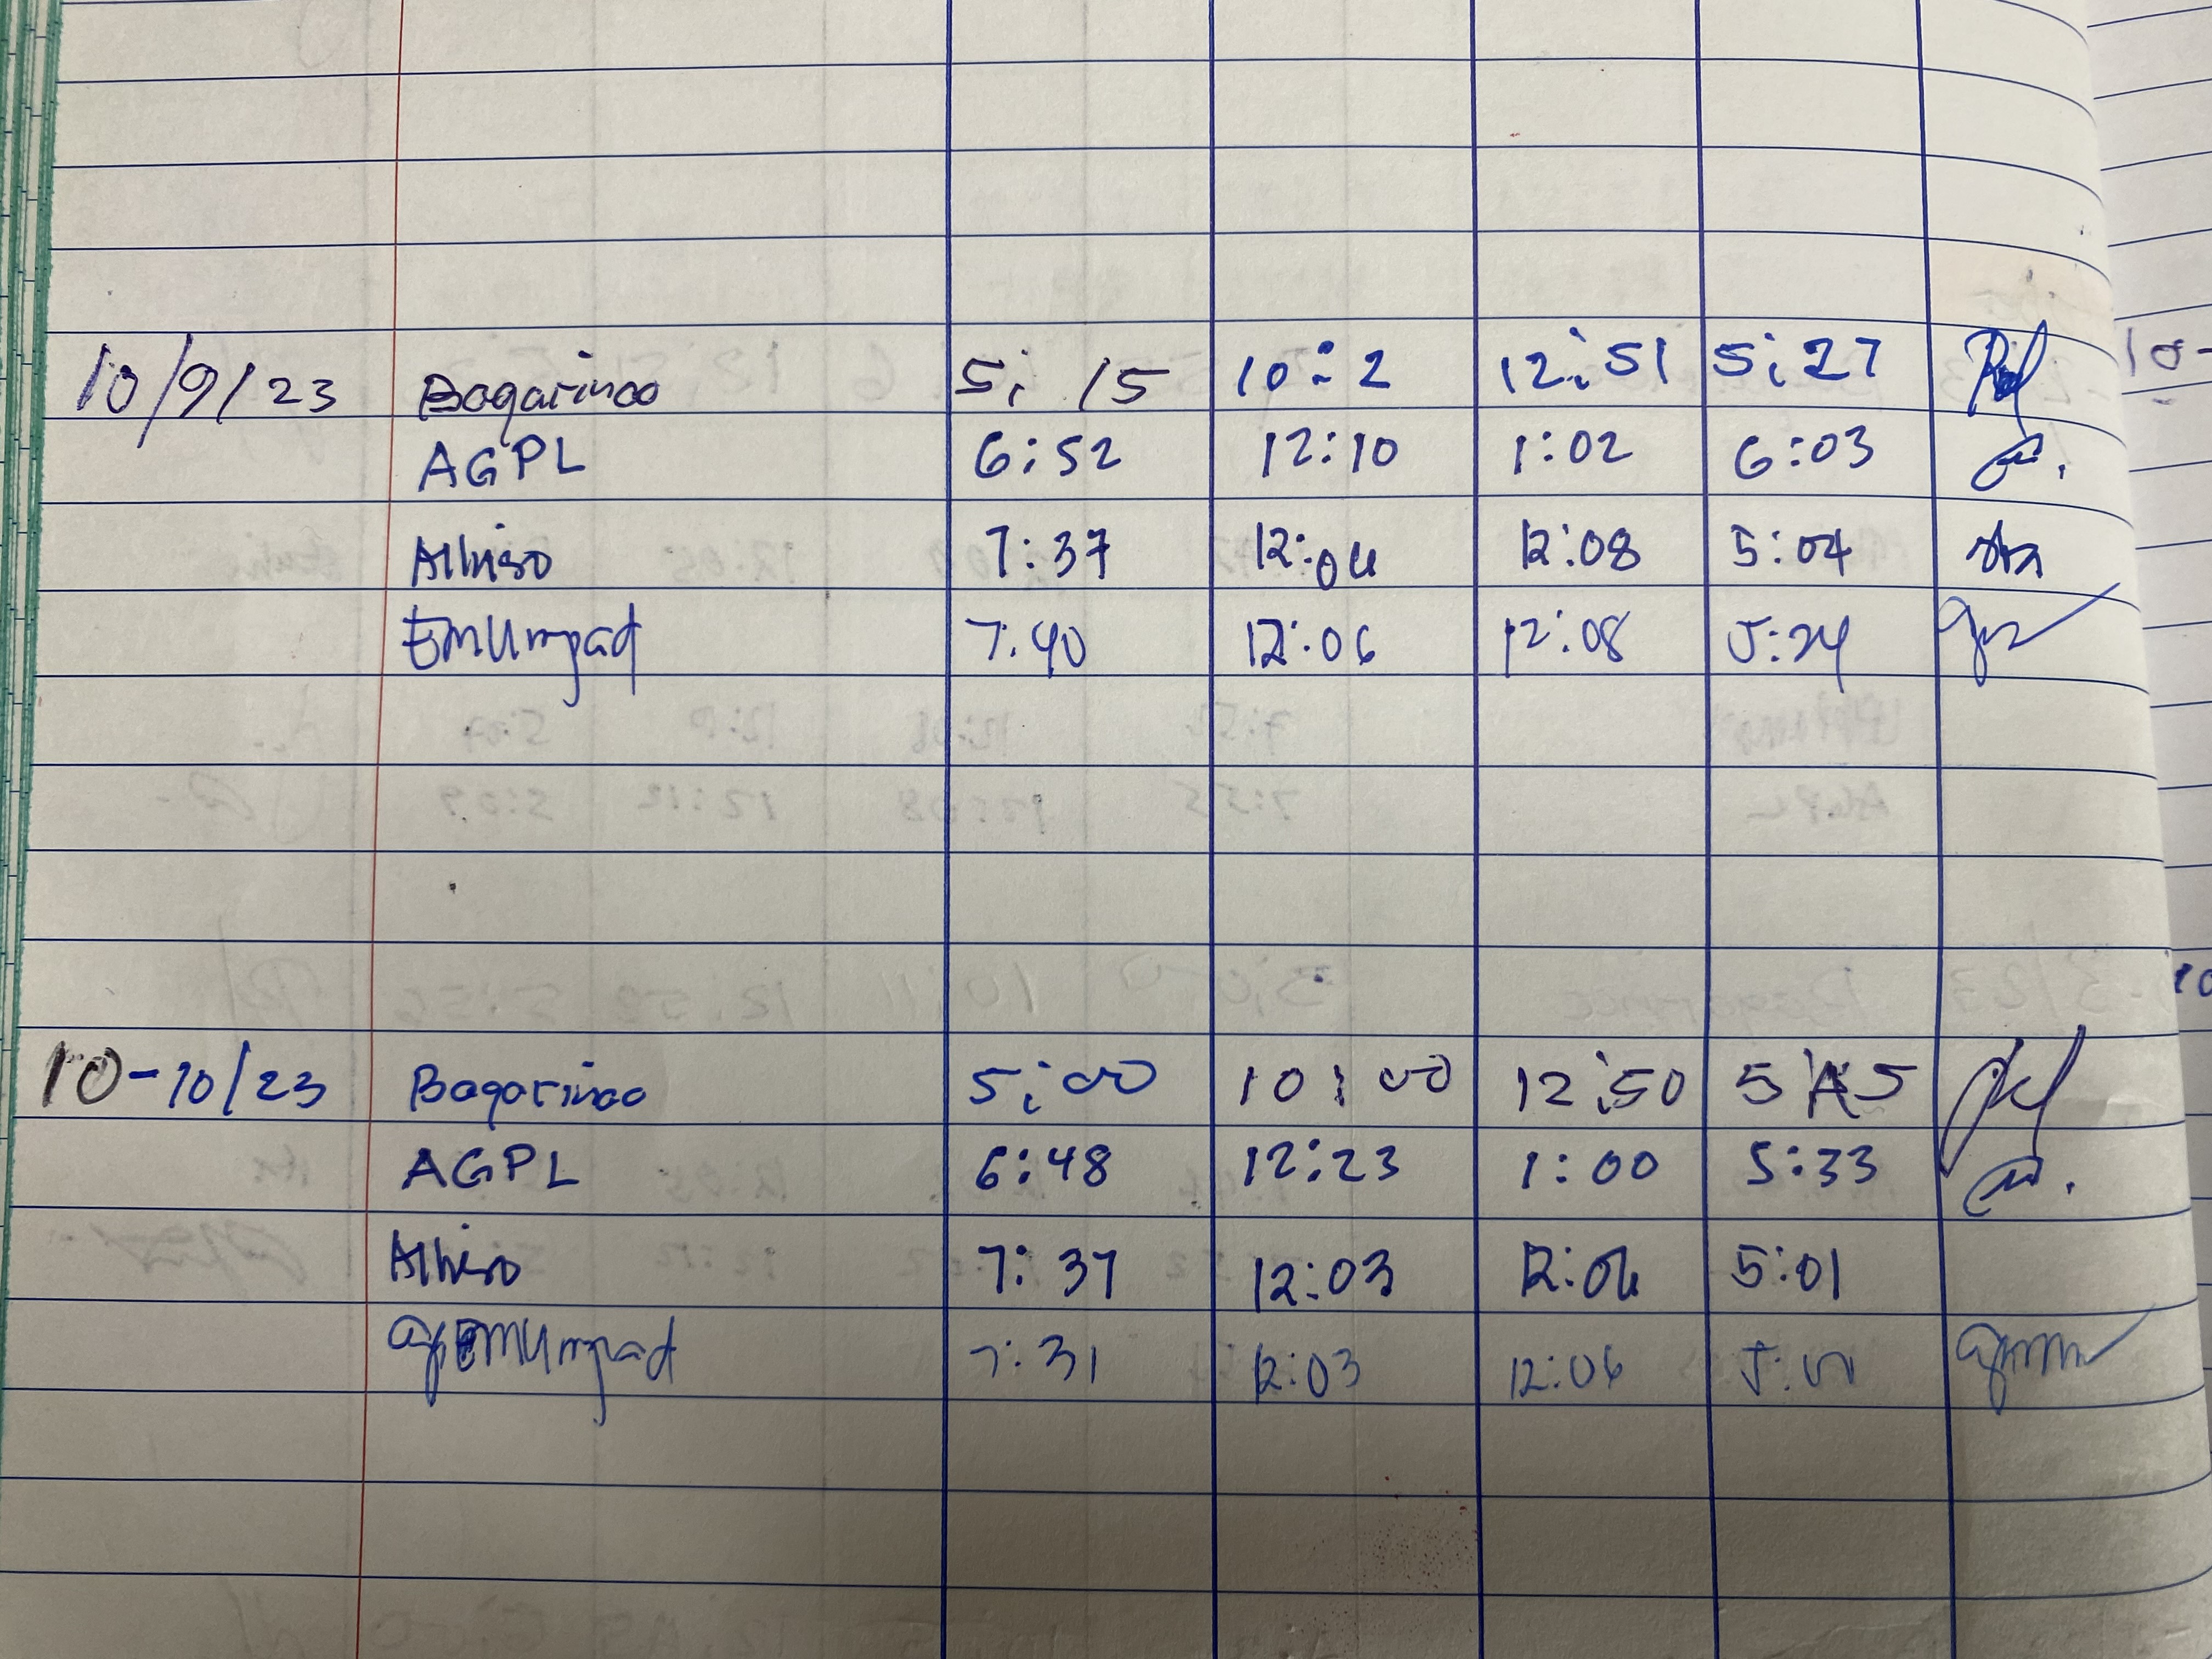 10/9/23 Bagarinao 5:15 10:2 12:51 5:27
AGPL 6:52 12:10 1:02 6:03
Alhiso 7:37 12:04 12:08 5:04
EMUmpad 7:40 12:06 12:08 5:24
10-10/23 Bagarinao 5:00 10:00 12:50 5:15
AGPL 6:48 12:23 1:00 5:33
Alhiso 7:37 12:03 12:06 5:01
EMUmpad 7:31 12:03 12:06 5:00